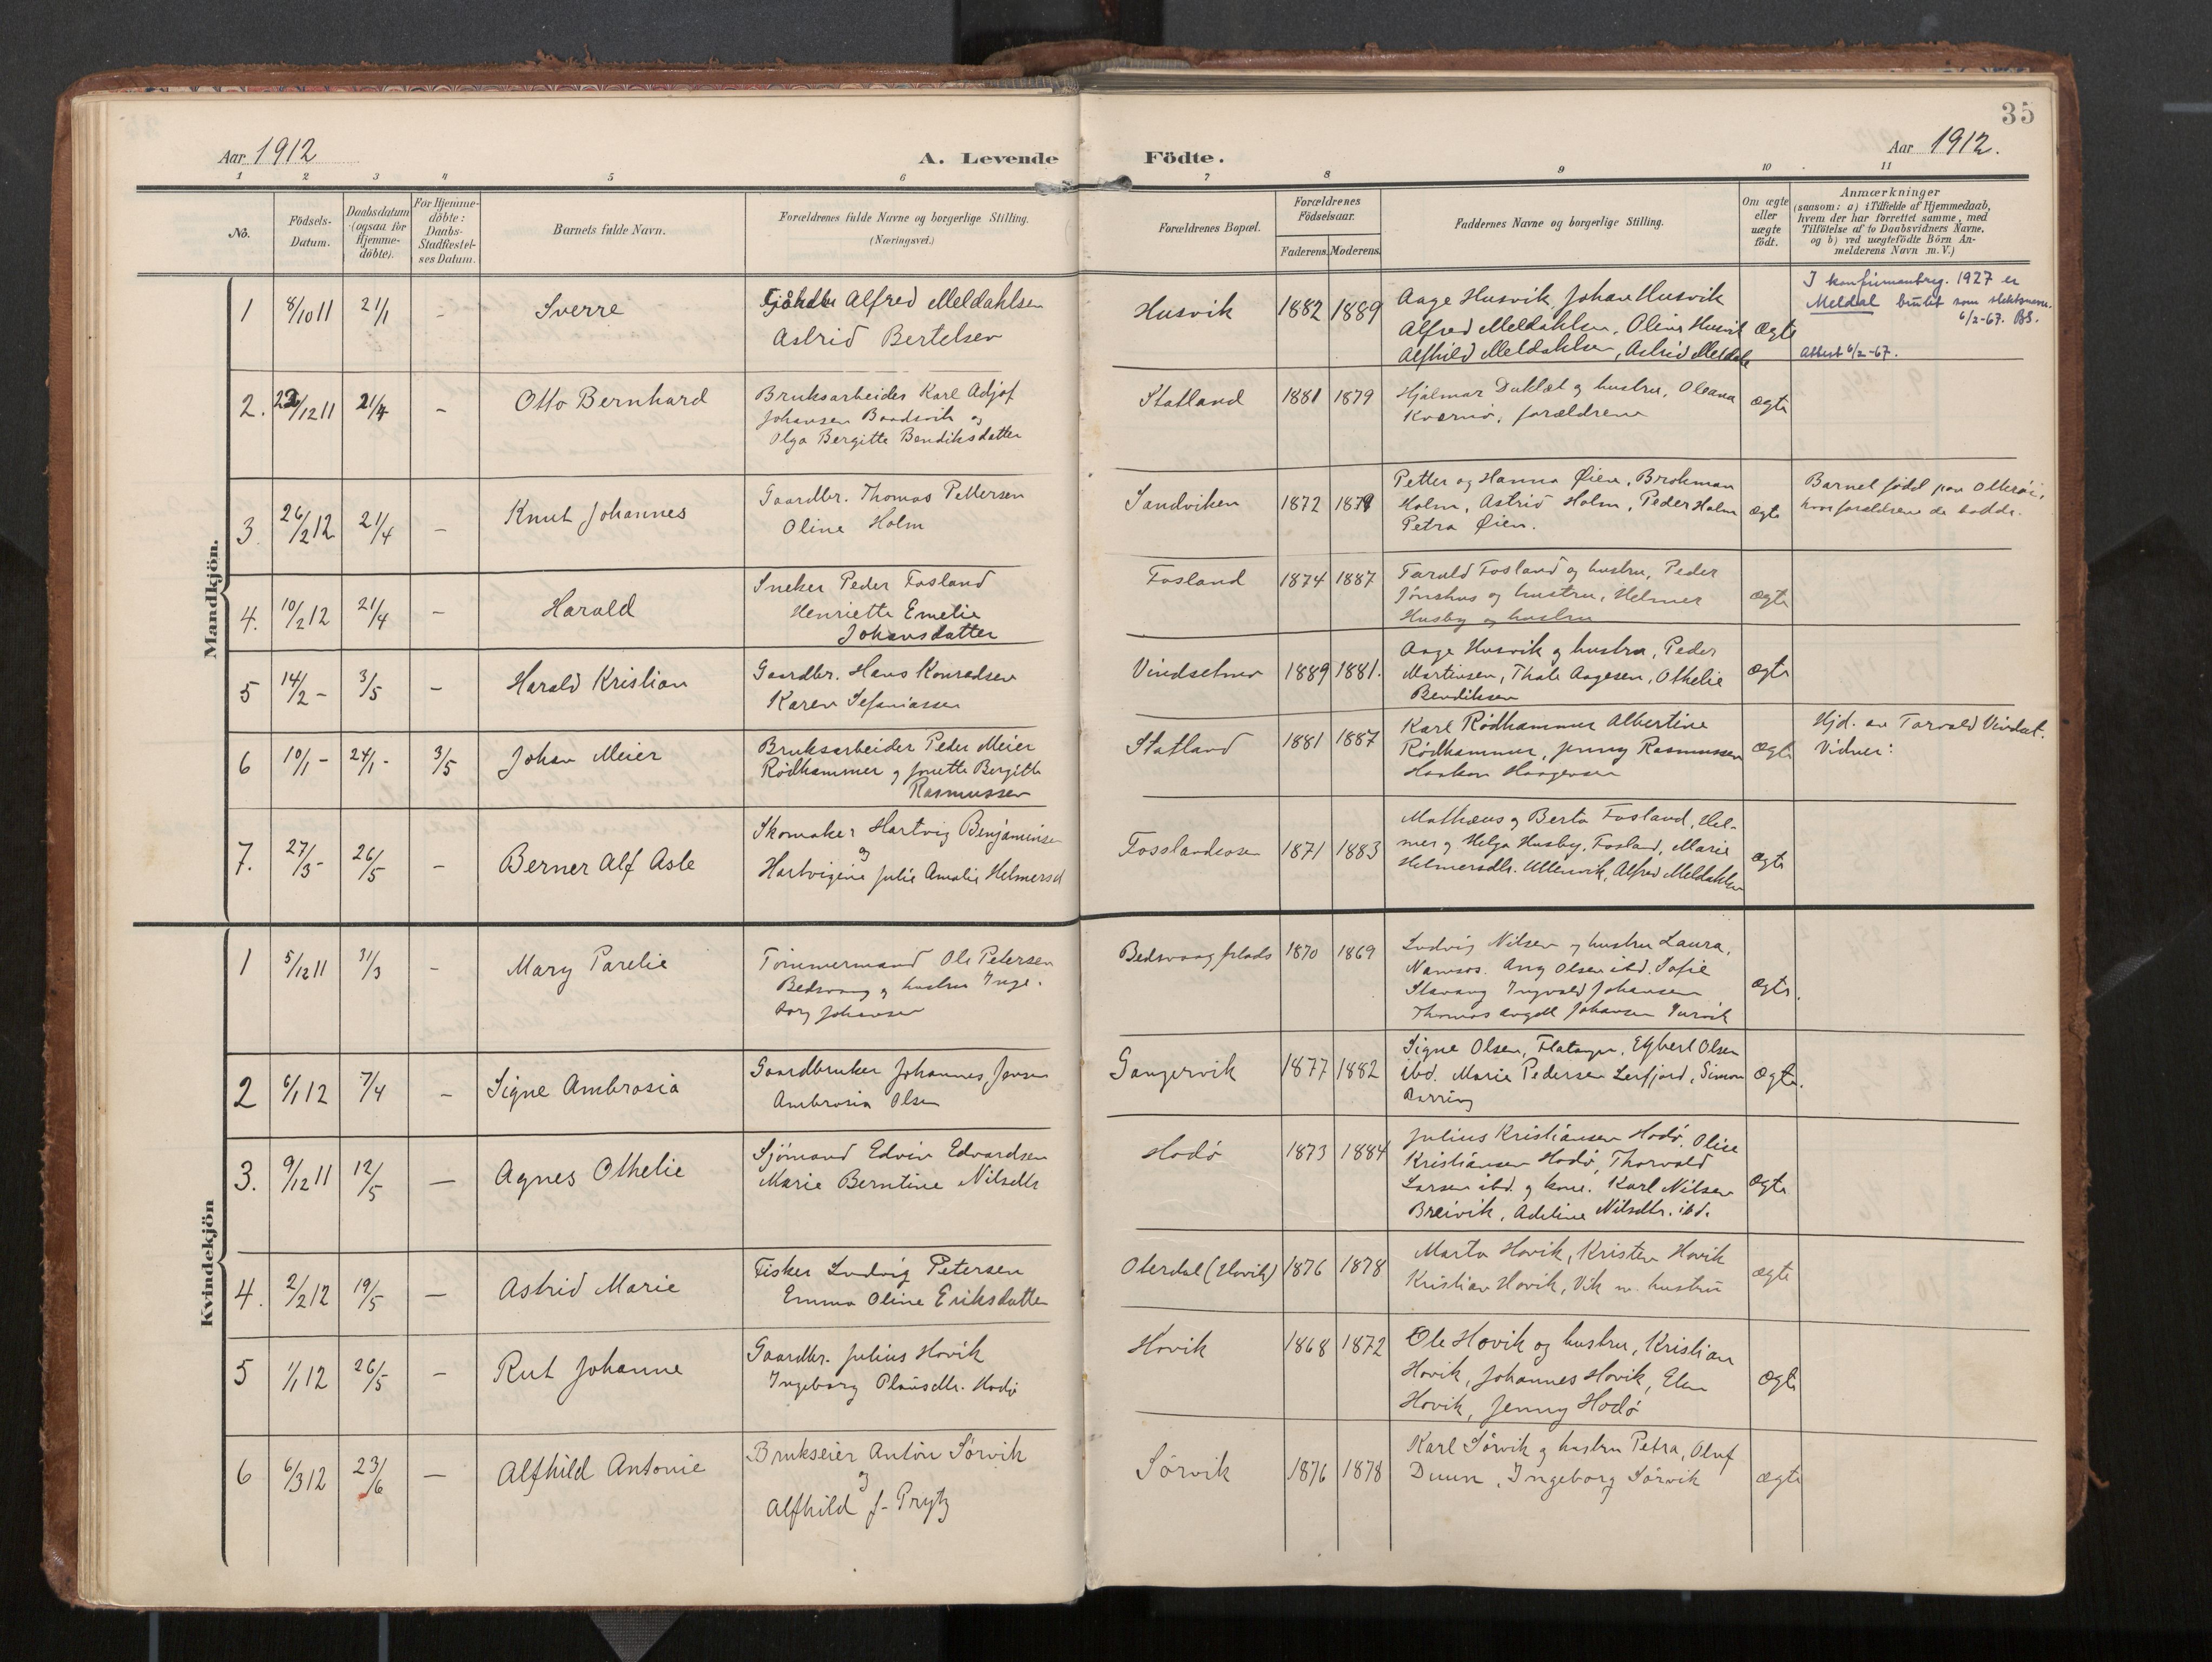 35
Aar 1912
A. Levende
Födte.
Aar 1912.
1 2 3 4 5 6 7 8 9 10 11
No.
Födsels-
Datum.
Daabsdatum
(ogsaa for
Hjemme-
döbte).
For Hjemme-
döbte:
Daabs-
Stadfæstel-
ses Datum.
Barnets fulde Navn.
Forældrenes fulde Navne og borgerlige Stilling.
(Næringsvei.)
Forældrenes Bopæl.
Forældrenes
Födselsaar.
Faderens. Moderens.
Faddernes Navne og borgerlige Stilling.
Om ægte
eller
uægte
födt.
Anmærkninger
(saasom: a) i Tilfælde af Hjemmedaab,
hvem der har forrettet samme, med
Tilföielse af to Daabsvidners Navne,
og b) ved uægtefödte Börn An-
melderens Navn m.V.)
Mandkjön.
1 8/10 11 21/1 - Sverre
Alfred Meldahlsen
Astrid Bertelsen
Husvik 1882 1889
Aage Husvik, Johan Husvik
Alfred Meldahlsen, Oline Husvik
Alfhild Meldahlsen, Astrid Meldahl
Ægte
I konfirmantreg. 1927 er
Meldal brukt som slektsnavn.
6/2-67. BS.
Attest 6/2-67.
2. /12 11 21/4 - Otto Bernhard
Bruksarbeider Karl Adjof
Johansen Baadsvik og
Olga Bergitte Bendiksdatter
Statland 1881 1879
Hjalmar Duklæt og hustru, Oleana
Kvernø, forældrene
ægte
3. 26/2 12 21/4 - Knut Johannes
Gaardbr. Thomas Pettersen
Oline Holm
Sandviken 1872 1879
Petter og Hanna Øien, Brokman
Holm, Astrid Holm, Peder Holm
Petra Øien.
ægte
Barnet född paa Otterøi,
hvor forældrene da bodde.
4. 10/2 12 21/4 - Harald
Sneker Peder Fosland
Henriette Emelie
Johansdatter
Fosland 1874 1887
Tarald Fosland og hustru, Peder
Jönshus og hustru, Helmer
Husby og hustru
ægte
5 14/2 - 3/5 - Harald Kristian
Gaardbr. Hans Konradsen
Karen Sefaniassen
Vindsetmo 1889 1881.
Aage Husvik og hustru, Peder
Martinsen, Thale Aagesen, Othelie
Bendiksen
ægte
6 10/1 - 24/1 - 3/5 Johan Meier
Bruksarbeider Peder Meier
Rødhammer og Jonette Bergitte
Rasmussen
Statland 1881 1887
Karl Rødhammer Albertine
Rødhammer, Jenny Rasmussen
Haakon Haagensen
ægte
Hjd. av Torvald Vindset.
Vidner:
7. 27/3 - 26/5 - Berner Alf Asle
Skomaker Hartvig Benjaminsen
og
Hartvigine Julie Amalie Helmersd
Fosslandsosen 1871 1883
Mathæus og Berta Fosland, Hel-
mer og Helga Husby, Fosland, Marie
Helmersdtr. Utterwik, Alfred Meldahlsen
ægte
Kvindekjön
1 5/12 11 31/3 - Mary Parelie
Tømmermand Ole Petersen
Bedsvaag og hustru Inge-
borg Johansen
Bedsvaag plads 1870 1869
Ludvig Nilsen og hustru Laura,
Namsos. Olsen ibd. Sofie
Stavang Ingvald Johansen
Thomas Angell Johansen
ægte.
2 6/1 12 7/4 - Signe Ambrosia
Gaardbruker Johannes Jensen
Ambrosia Olsen
Gangervik 1877 1882
Signe Olsen, Flatanger, Egbert Olsen
ibd. Marie Pedersen Leifjord, Simon
ægte.
3. 9/12 11 12/5 - Agnes Othelie
Sjömand Edvin Edvardsen
Marie Berntine Nilsdtr
Hodø 1873 1884
Julius Kristiansen Hodø, Olise
Kristiansen Hodø, Thorvald
Larsen ibd. og kone. Karl Nilsen
Breivik, Adeline Nilsdtr. ibd.
ægte
4. 2/2 12 19/5 - Astrid Marie
Fisker Ludvig Petersen
Emma Oline Eriksdatter
Oterdal (Hovik) 1876 1878
Marta Hovik, Kristen Hovik
Kristian Hovik, Vik m. hustru
ægte
5 1/1 12 26/5 - Rut Johanne
Gaardbr. Julius Hovik
Ingeborg Hodø
Hovik 1868 1872
Ole Hovik og hustru, Kristian
Hovik, Johannes Hovik, Elen
Hovik, Jenny Hodø
ægte
6 6/3 12 23/6 - Alfhild Antonie
Brukseier Anton Sörvik
og
Alfhild J. Prytz
Sörvik 1876 1878
Karl Sörvik og hustru Petra, Oluf
Duun, Ingeborg Sörvik
ægte